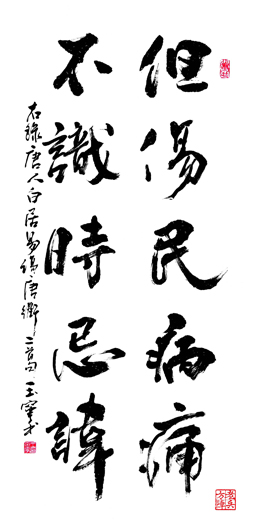 但傷民病痛
不識時忌諱
右錄唐人白居易傷唐衢二首